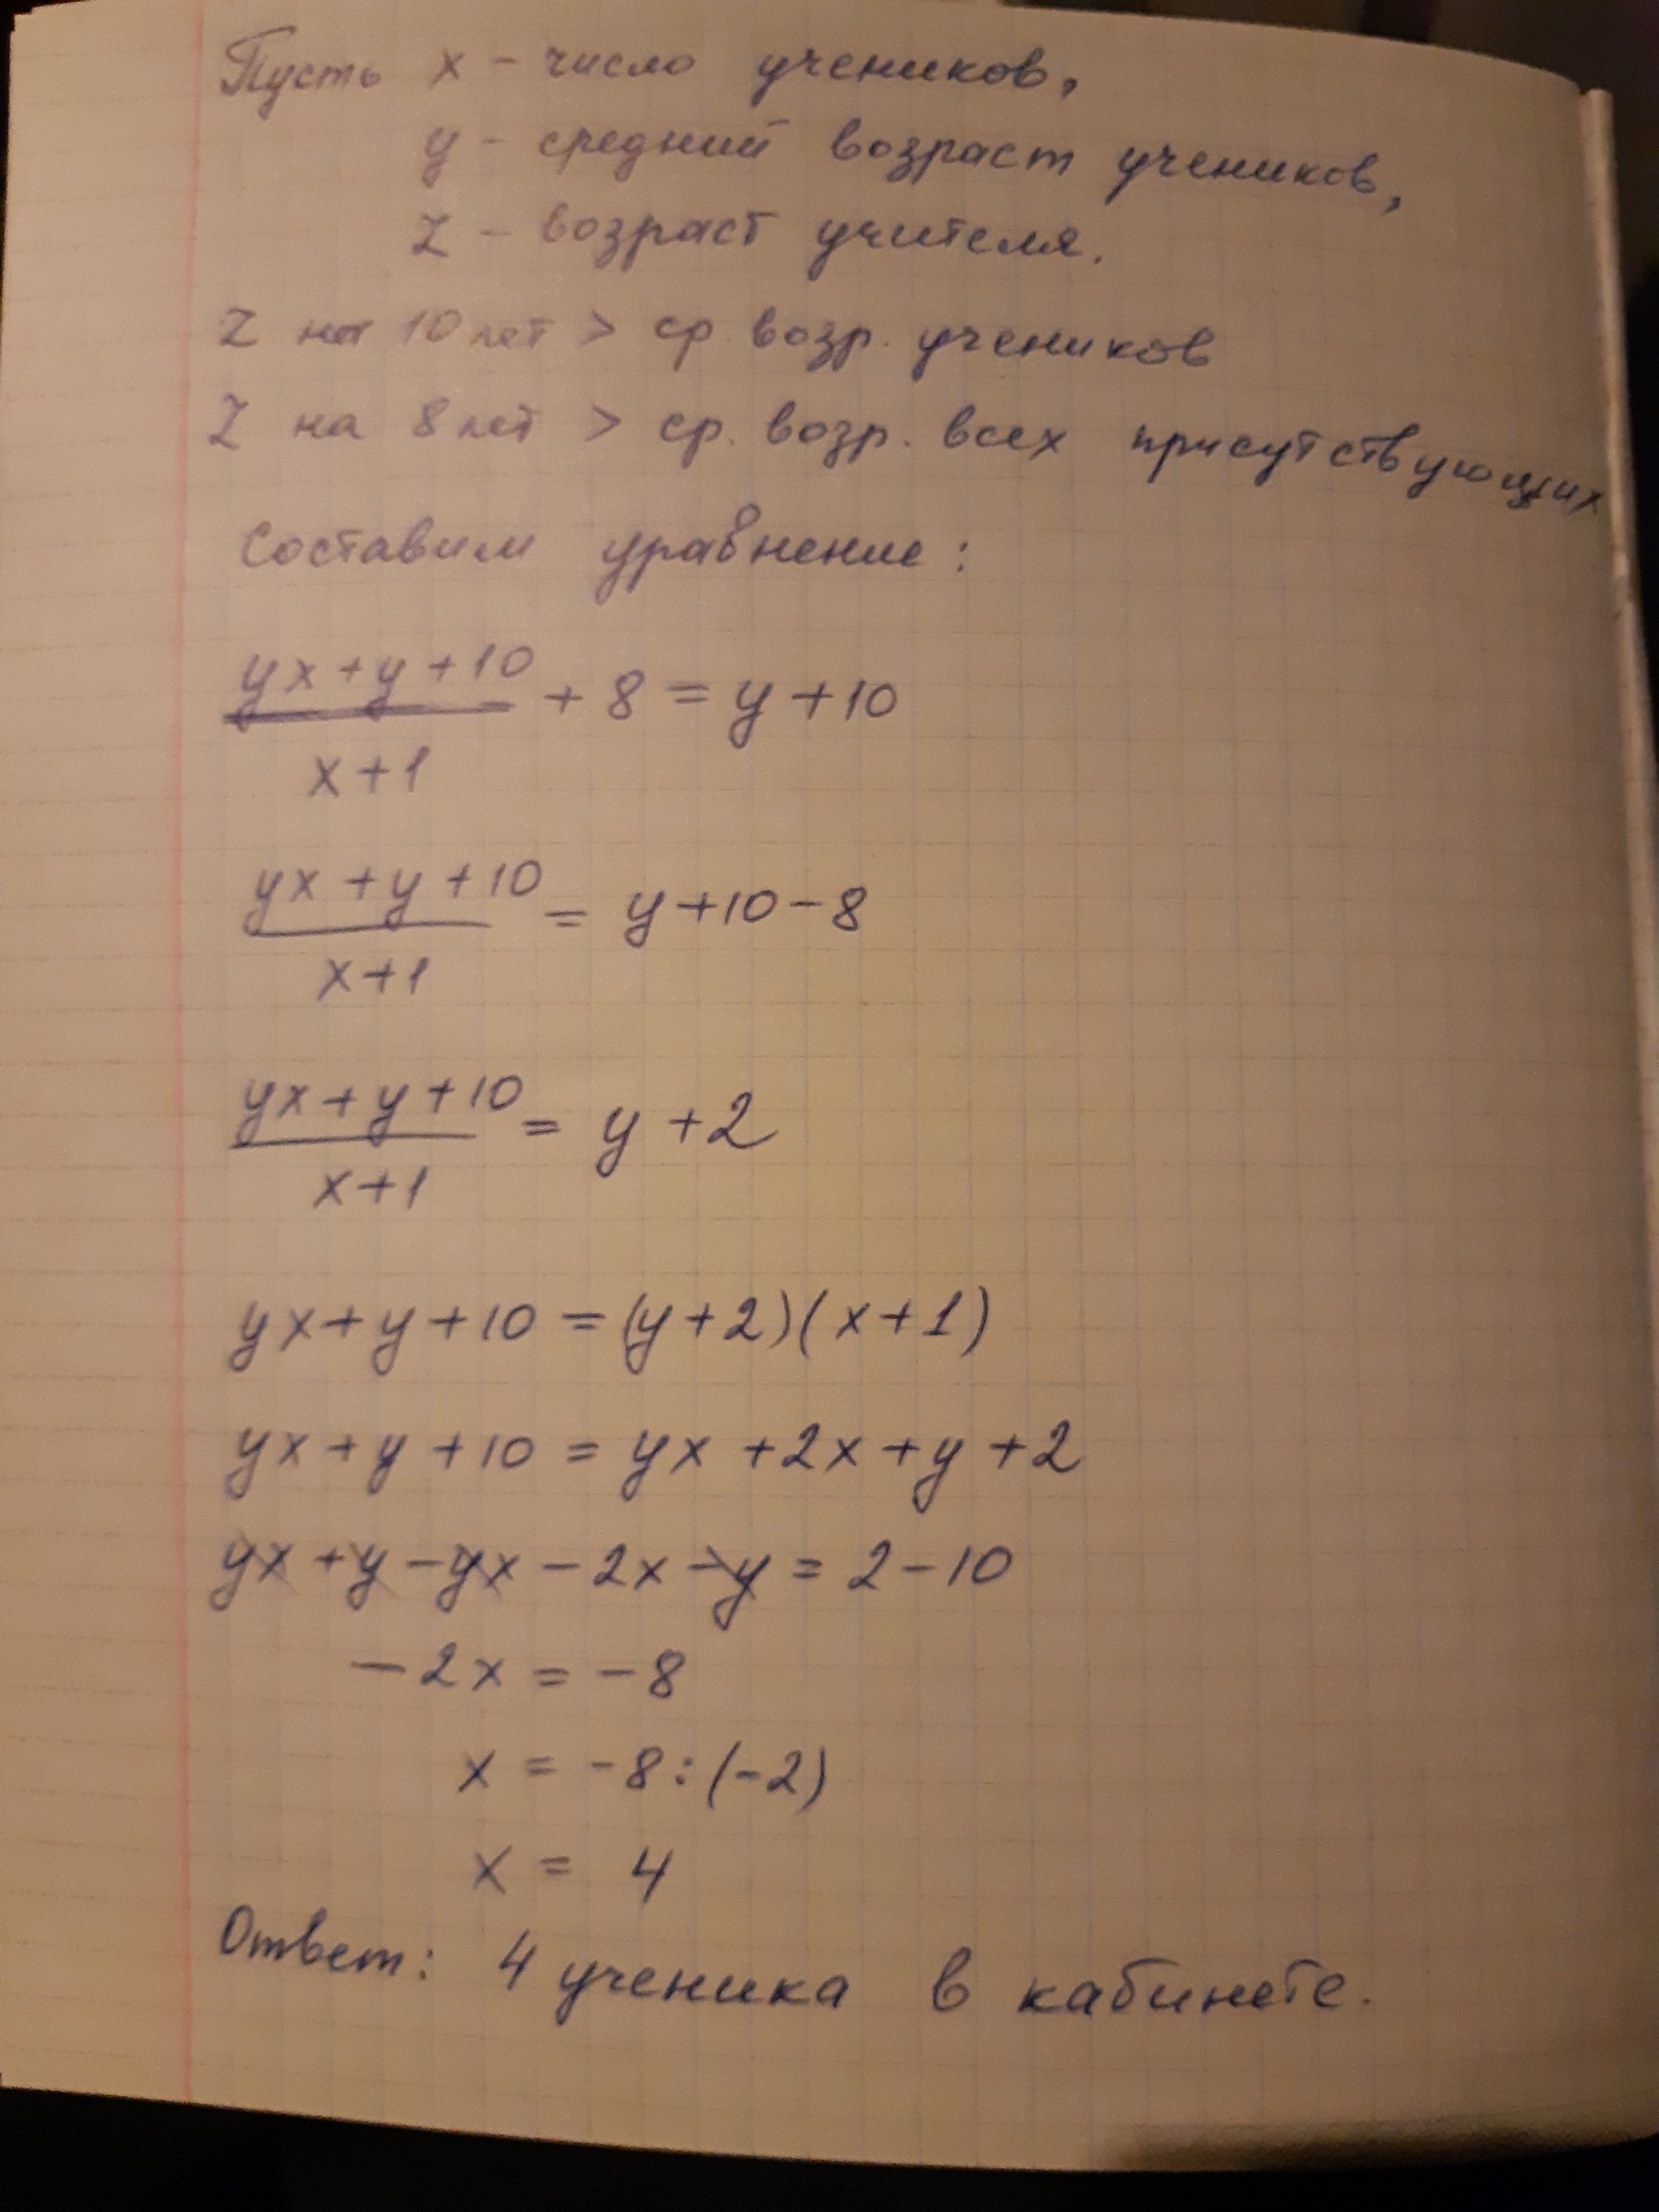 Пусть x - число учеников,
y - средний возраст учеников,
z - возраст учителя.
z на 10 лет > ср. возр. учеников
z на 8 лет > ср. возр. всех присутствующих
Составим уравнение:
yx+y+10
x+1
+ 8 = y+10
yx+y+10
x+1
= y+10-8
yx+y+10
x+1
= y+2
yx+y+10 = (y+2)(x+1)
yx+y+10 = yx+2x+y+2
yx+y-yx-2x-y = 2-10
-2x = -8
x = -8:(-2)
x = 4
Ответ: 4 ученика в кабинете.